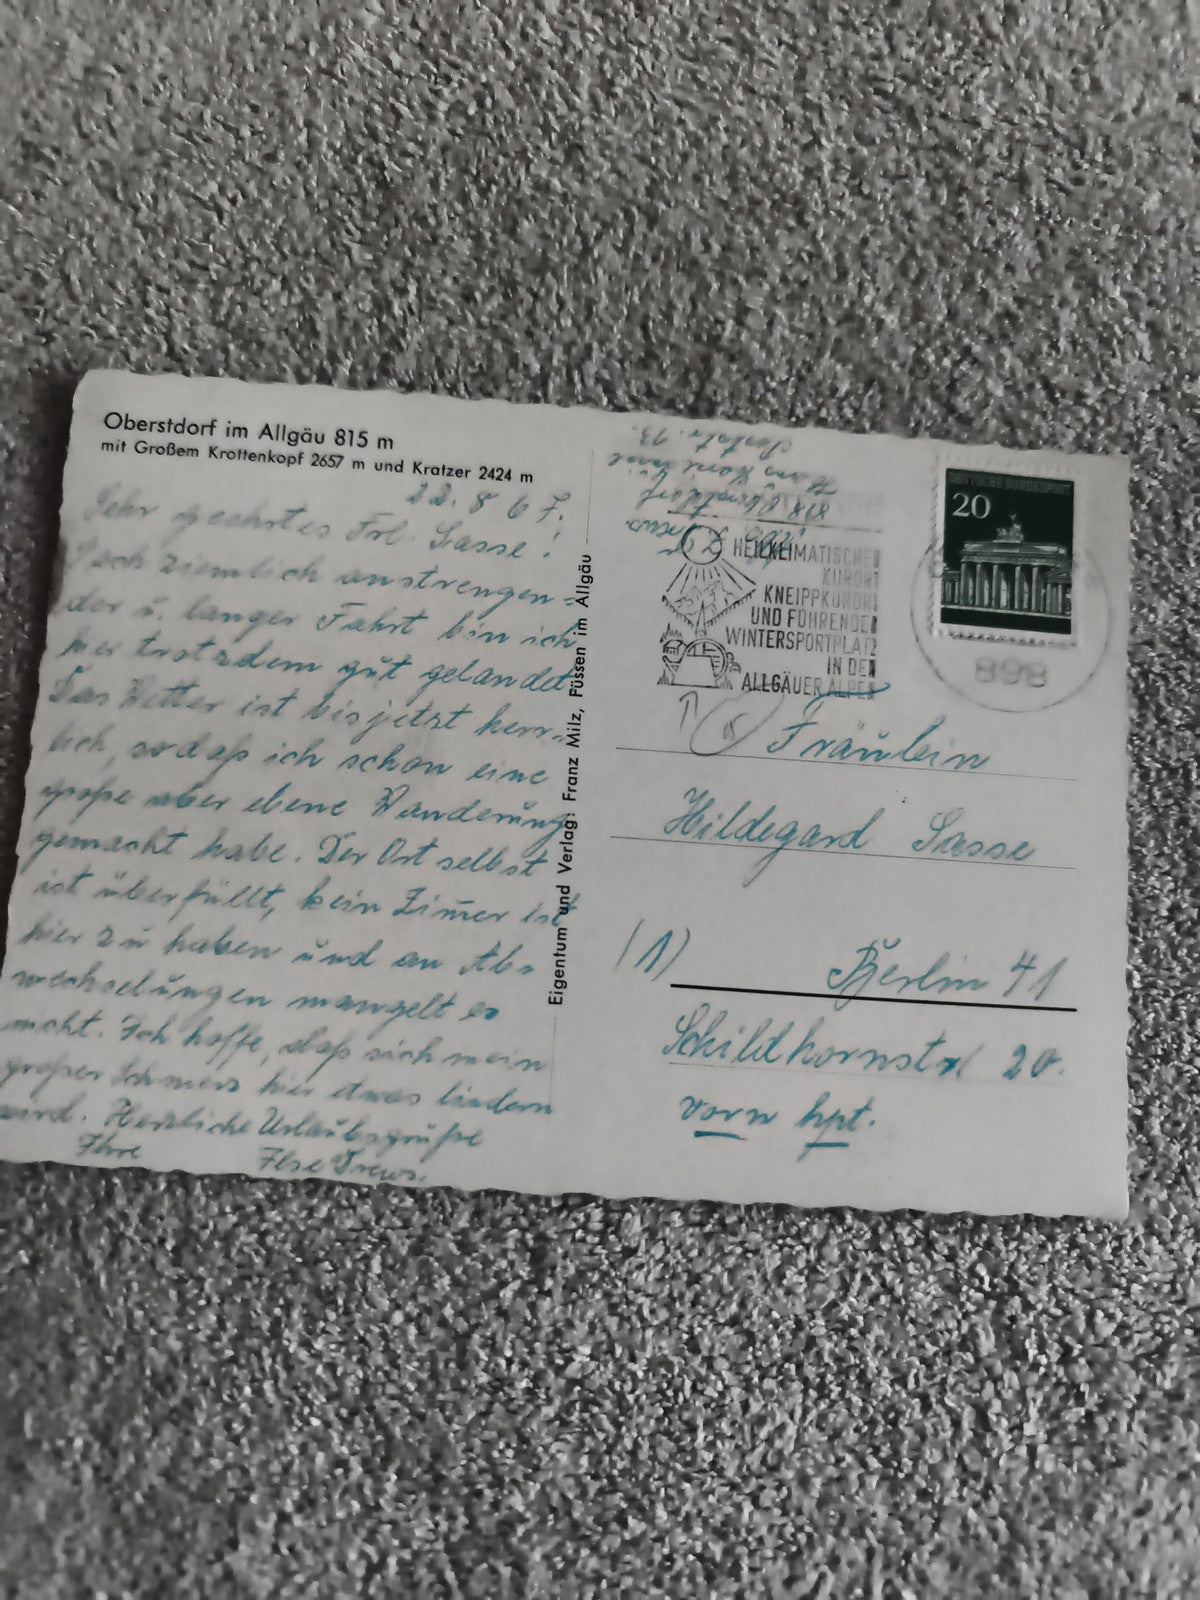 Oberstdorf im Allgäu 815 m
mit Großem Krottenkopf 2657 m und Kratzer 2424 m
22.8.67.
Sehr geehrtes Frl. Sasse!
Nach ziemlich anstrengen=
der u. langer Fahrt bin ich
hier trotzdem gut gelandet.
Das Wetter ist bis jetzt herr=
lich, sodaß ich schon eine
große aber ebene Wanderung
gemacht habe. Der Ort selbst
ist überfüllt, kein Zimmer ist
hier zu haben und an Ab=
wechselungen mangelt es
nicht. Ich hoffe, daß sich mein
großer Schmerz hier etwas lindern
wird. Herzliche Urlaubsgrüße
Ihre
Ilse Drews.
Eigentum und Verlag: Franz Milz, Füssen im Allgäu
Ilse Drews
898 Oberstdorf
Haus
13.
HEILKLIMATISCHER
KURORT
KNEIPPKURORT
UND FÜHRENDER
WINTERSPORTPLATZ
IN DEN
ALLGÄUER ALPEN
DEUTSCHE BUNDESPOST
20
898
Fräulein
Hildegard Sasse
(1) Berlin 41
Schildhornstr 20.
vorn hpt.